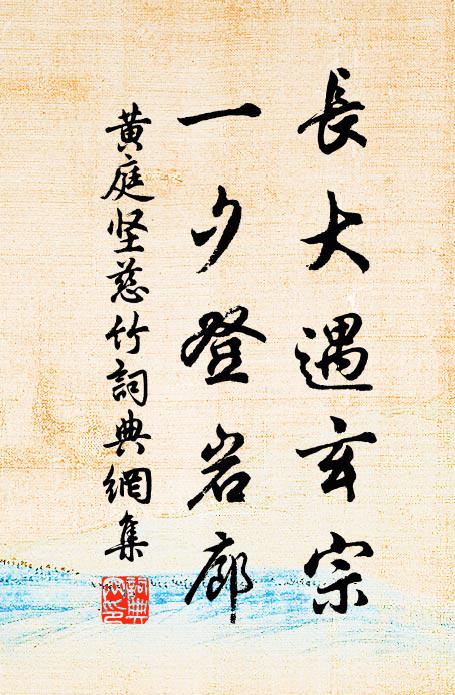 長大遇玄宗
一夕登岩廊
黄庭坚慈竹詞典網集
詞典